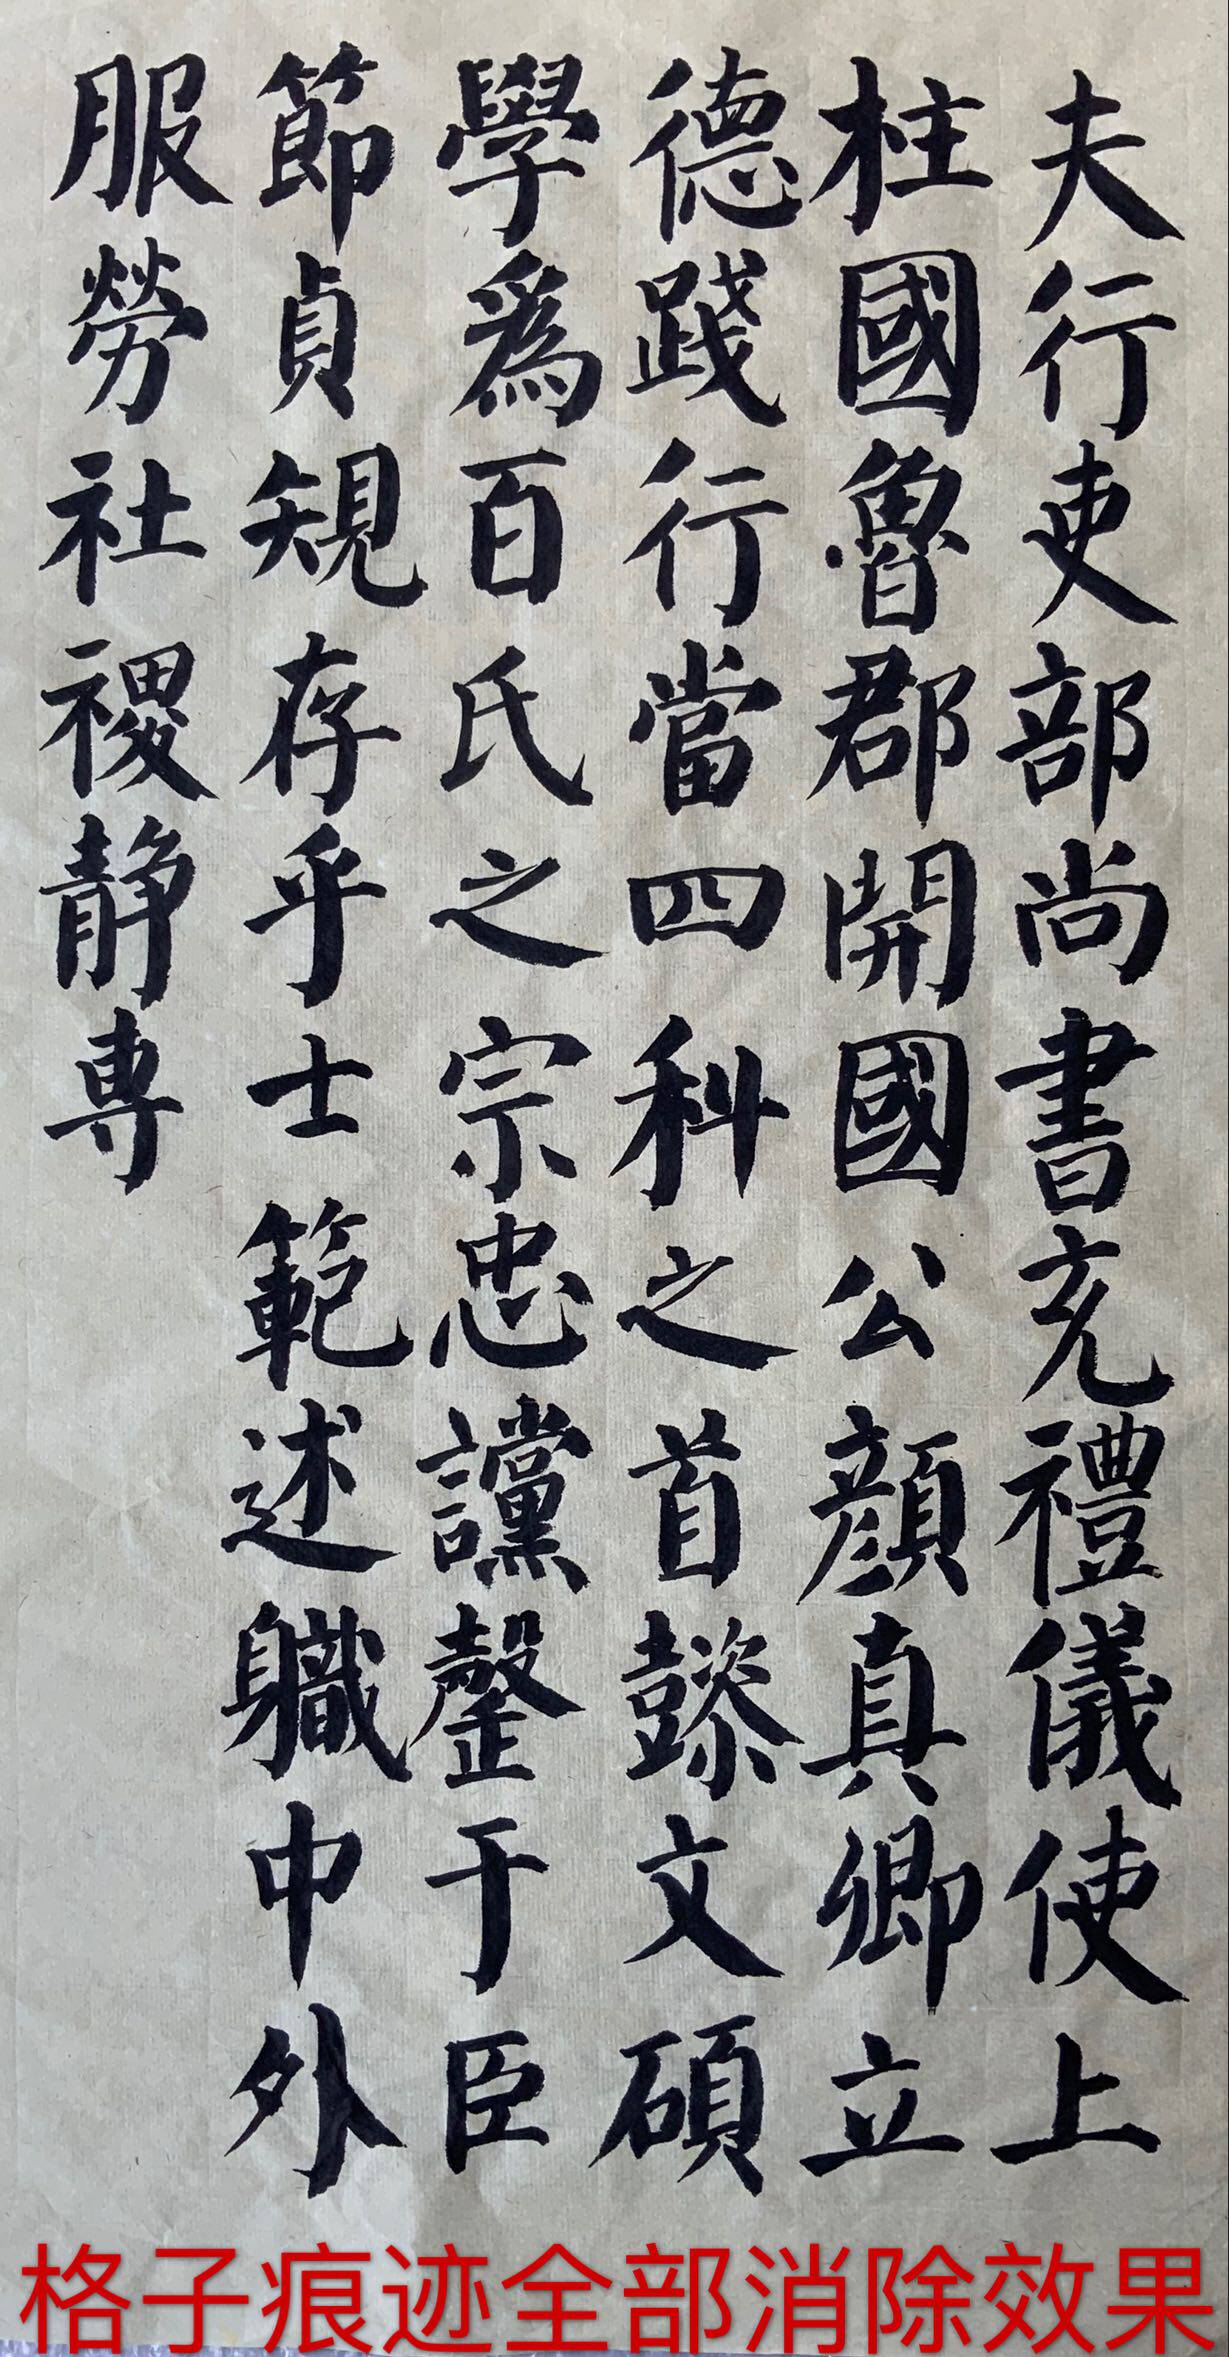 夫行吏部尚書充禮儀使上
柱國魯郡開國公顔真卿立
德踐行當四科之首懿文碩
學爲百氏之宗忠讜罄于臣
節貞規存乎士範述職中外
服勞社稷静專
格子痕迹全部消除效果